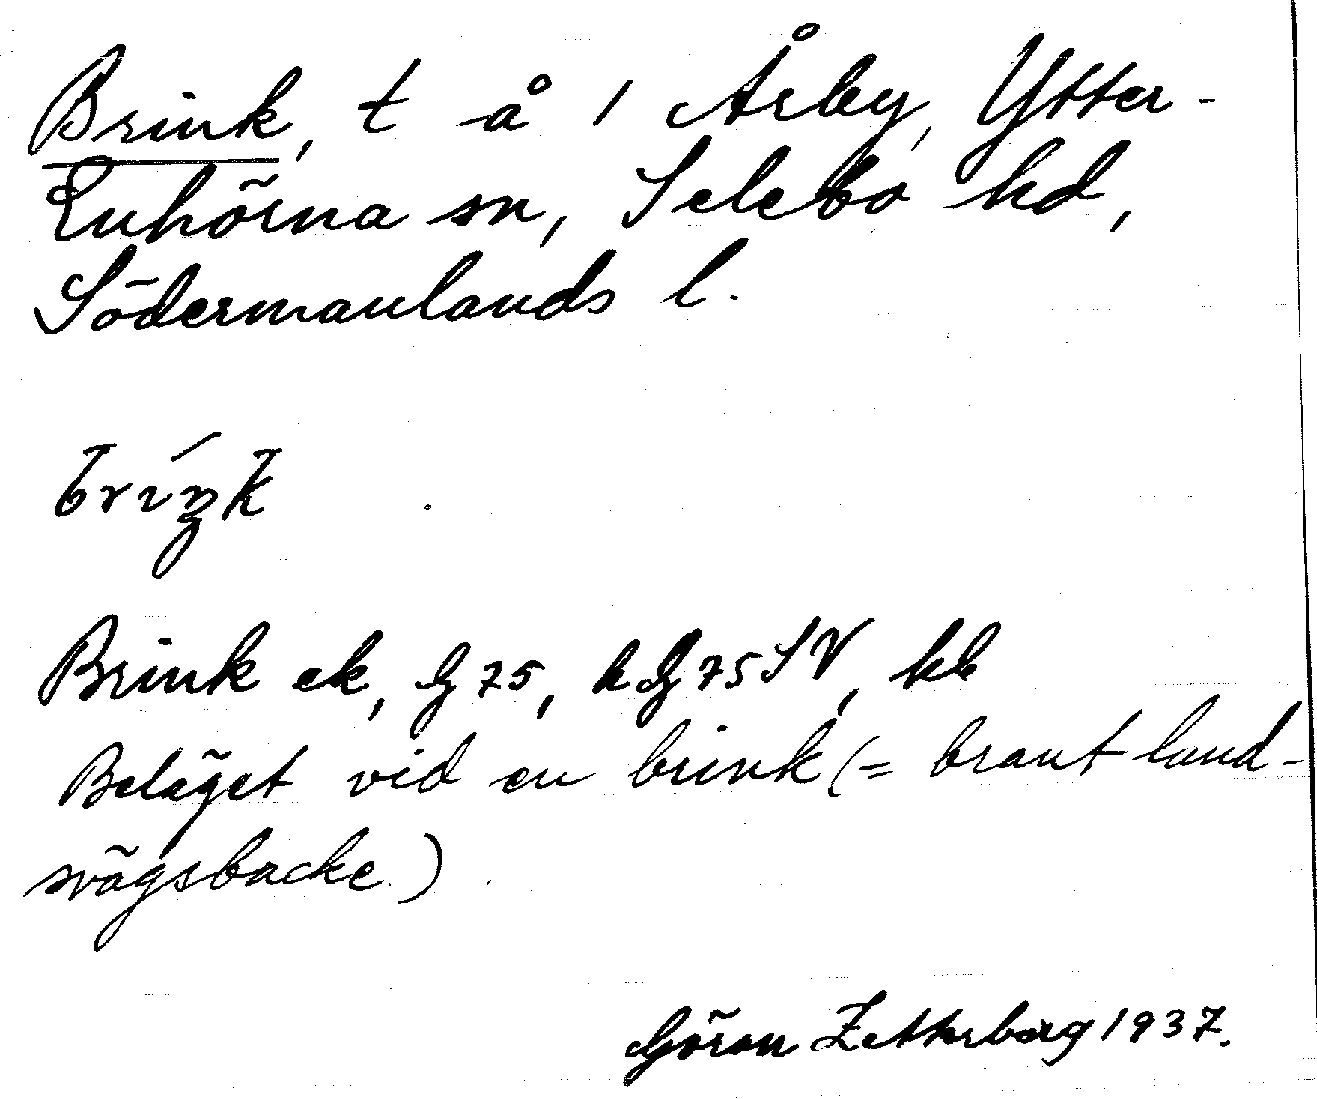 Brink, t å 1 Årby, Ytter-
Enhörna sn, Selebo hd,
Södermanlands l.
bríŋk
Brink ek, G 75, h G 75 SV, kb
Beläget vid en brink (= brant lands-
vägsbacke.)
Göran Zetterberg 1937.